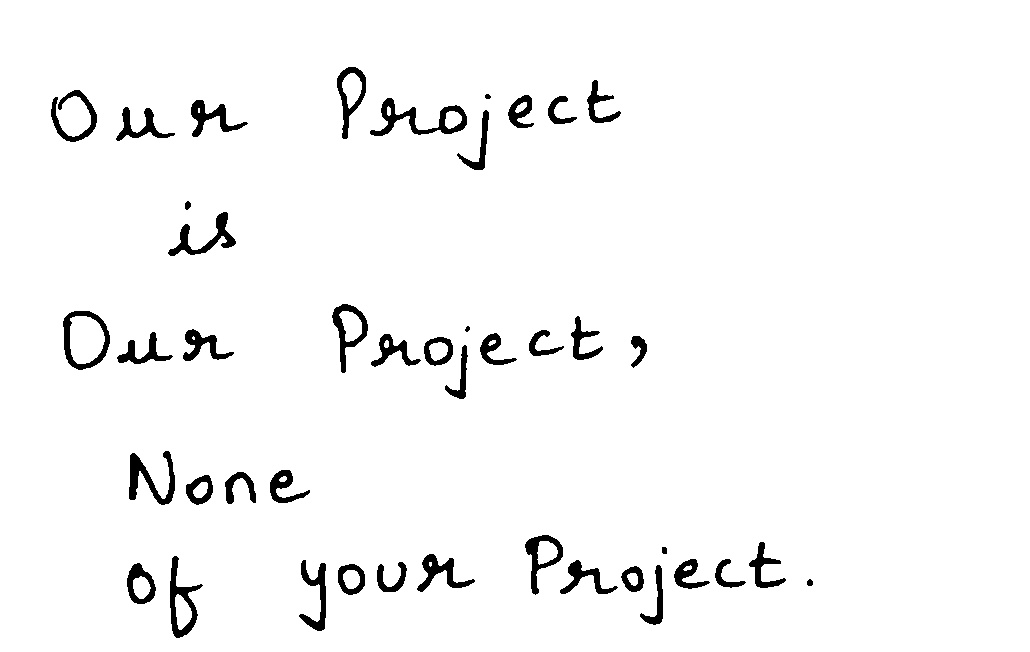 Our Project
is
Our Project,
None
of your Project.